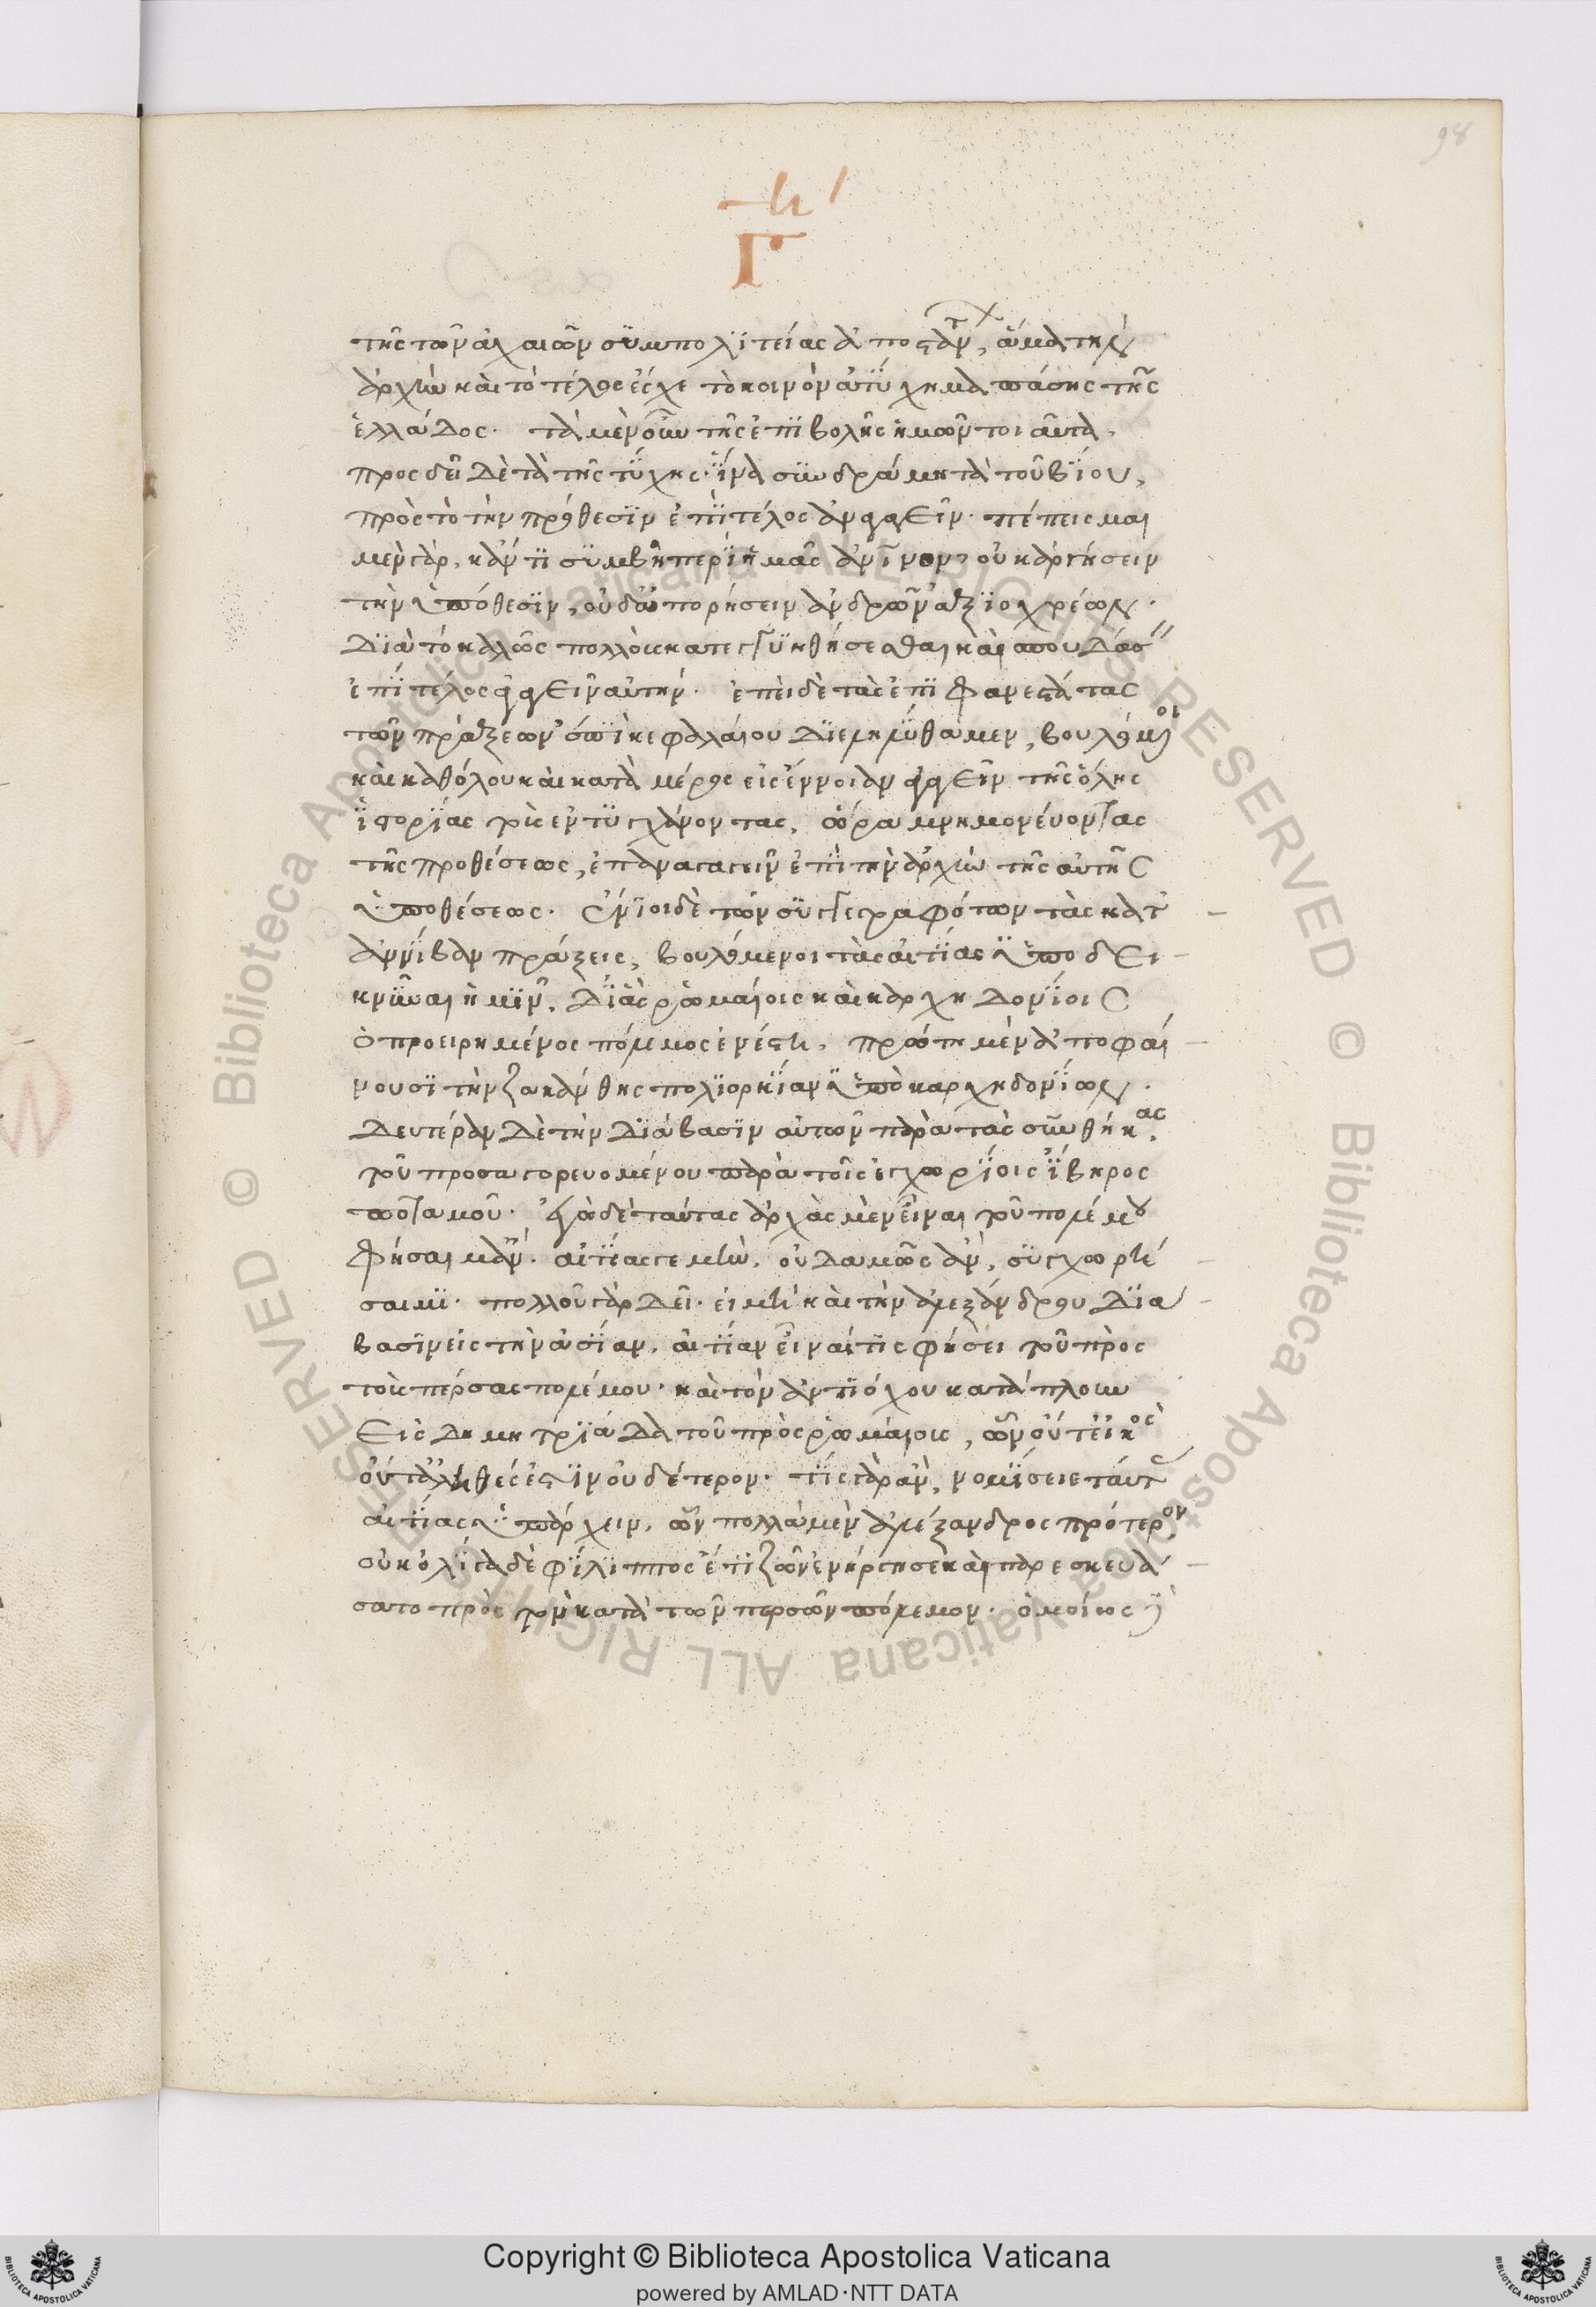 98
η′
Γ
τῆς τῶν ἀχαιῶν συμπολιτείας ἀποστάν, ἅμα τὴν
ἀρχὴν καὶ τὸ τέλος ἔσχε τὸ κοινὸν ἀτύχημα πάσης τῆς
ἑλλάδος. τὰ μὲν οὖν τῆς ἐπιβολῆς ἡμῶν τοιαῦτα.
προσδεῖ δὲ τὰ τῆς τύχης. ἵνα συνδράμη τὰ τοῦ βίου,
πρὸς τὸ τὴν πρόθεσιν ἐπὶ τέλος ἀγαγεῖν. πέπεισμαι
μὲν γὰρ, κἄν τι συμβῆ περὶ ἡμᾶς ἀνθρώπινον, οὐκ ἀργήσειν
τὴν ὑπόθεσιν, οὐδ' ἀπορήσειν ἀνδρῶν ἀξιοχρέων.
διὰ τὸ καλῶς πολλοὺς κατεγγυηθήσεσθαι καὶ σπουδάσ
ἐπὶ τέλος ἀγαγεῖν αὐτήν. ἐπεὶ δὲ τὰς ἐπιφανεστάτας
τῶν πράξεων ἐπὶ κεφαλαίου διεληλύθαμεν, βουλόμενοι
καὶ καθόλου καὶ κατὰ μέρος εἰς ἔννοιαν ἀγαγεῖν τῆς ὅλης
ἱστορίας τοὺς ἐντυγχάνοντας, ὥρα μνημονεύοντας
τῆς προθέσεως, ἐπαναγαγεῖν ἐπὶ τὴν ἀρχὴν τῆς αὐτῆς
ὑποθέσεως. ἔνιοι δὲ τῶν συγγεγραφότων τὰς κατ'
ἀννίβαν πράξεις, βουλόμενοι τὰς αἰτίας ὑποδει
κνῦναι ἡμῖν, δι' ἃς ῥωμαίοις καὶ καρχηδονίοις
ὁ προειρημένος πόλεμος ἐνέστη, πρώτην μὲν ἀποφαί
νουσι τὴν ζακάνθης πολιορκίαν ὑπὸ καρχηδονίων.
δευτέραν δὲ τὴν διάβασιν αὐτῶν παρὰ τὰς συνθήκας
τοῦ προσαγορευομένου παρὰ τοῖς ἐγχωρίοις ἴβηρος
ποταμοῦ. ἐγὼ δὲ ταύτας ἀρχὰς μὲν εἶναι τοῦ πολέμου
φήσαιμ' ἄν. αἰτίας γε μὴν, οὐδαμῶς ἂν, συγχωρή
σαιμι. πολλοῦ γὰρ δεῖ. εἰ μὴ καὶ τὴν ἀλεξάνδρου διά
βασιν εἰς τὴν ἀσίαν, αἰτίαν εἶναί τις φήσει τοῦ πρὸς
τοὺς πέρσας πολέμου. καὶ τὸν ἀντιόχου κατάπλουν
εἰς δημητριάδα τοῦ πρὸς ῥωμαίους, ὧν οὔτ' εἰκὸς
οὔτ' ἀληθές ἐστιν οὐδέτερον. τίς γὰρ ἂν, νομίσειε ταύτ
αἰτίας ὑπάρχειν, ὧν πολλὰ μὲν ἀλέξανδρος πρότερον
οὐκ ὀλίγα δὲ φίλιππος ἔτι ζῶν ἐνήργησε καὶ παρεσκευά
σατο πρὸς τὸν κατὰ τῶν περσῶν πόλεμον. ὁμοίως
Copyright © Biblioteca Apostolica Vaticana
powered by AMLAD·NTT DATA
© Biblioteca Apostolica Vaticana ALL RIGHTS RESERVED
© Biblioteca Apostolica Vaticana ALL RIGHTS RESERVED